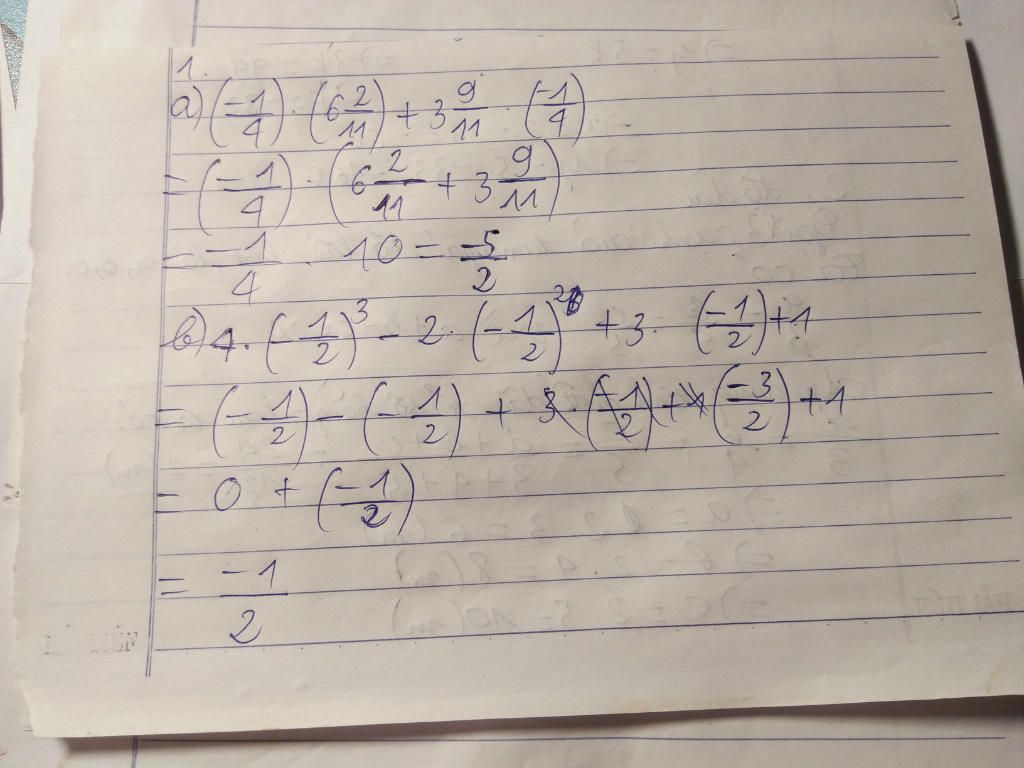 1.
a) (-1/4) · (6 2/11) + 3 9/11 · (-1/4)
= (-1/4) · (6 2/11 + 3 9/11)
= -1/4 · 10 = -5/2
b) 4 · (-1/2)^3 - 2 · (-1/2)^2 + 3 · (-1/2) + 1
= (-1/2) - (-1/2) + (-3/2) + 1
= 0 + (-1/2)
= -1/2